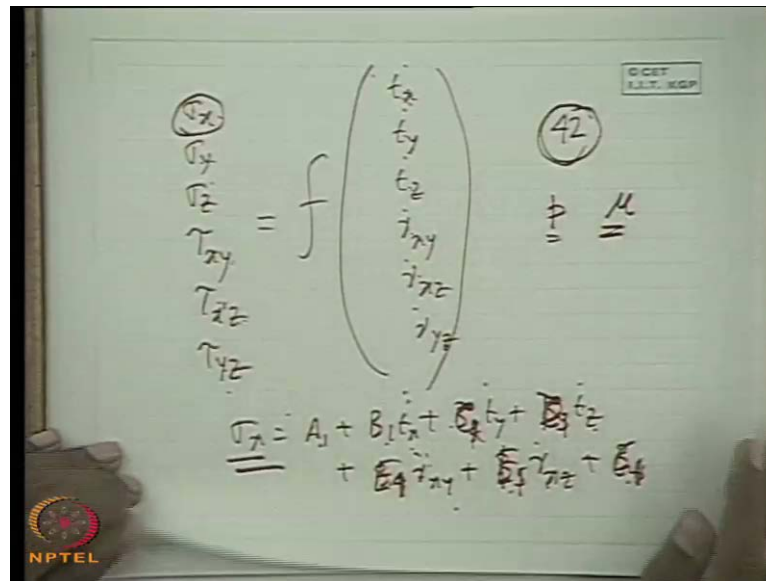 © CET
I.I.T. KGP
σx
σy
σz
τxy
τxz
τyz
= f
ε̇x
ε̇y
ε̇z
γ̇xy
γ̇xz
γ̇yz
42
p μ
σx = A1 + B1 ε̇x + ε̇y + ε̇z
+ γ̇xy + γ̇xz +
NPTEL